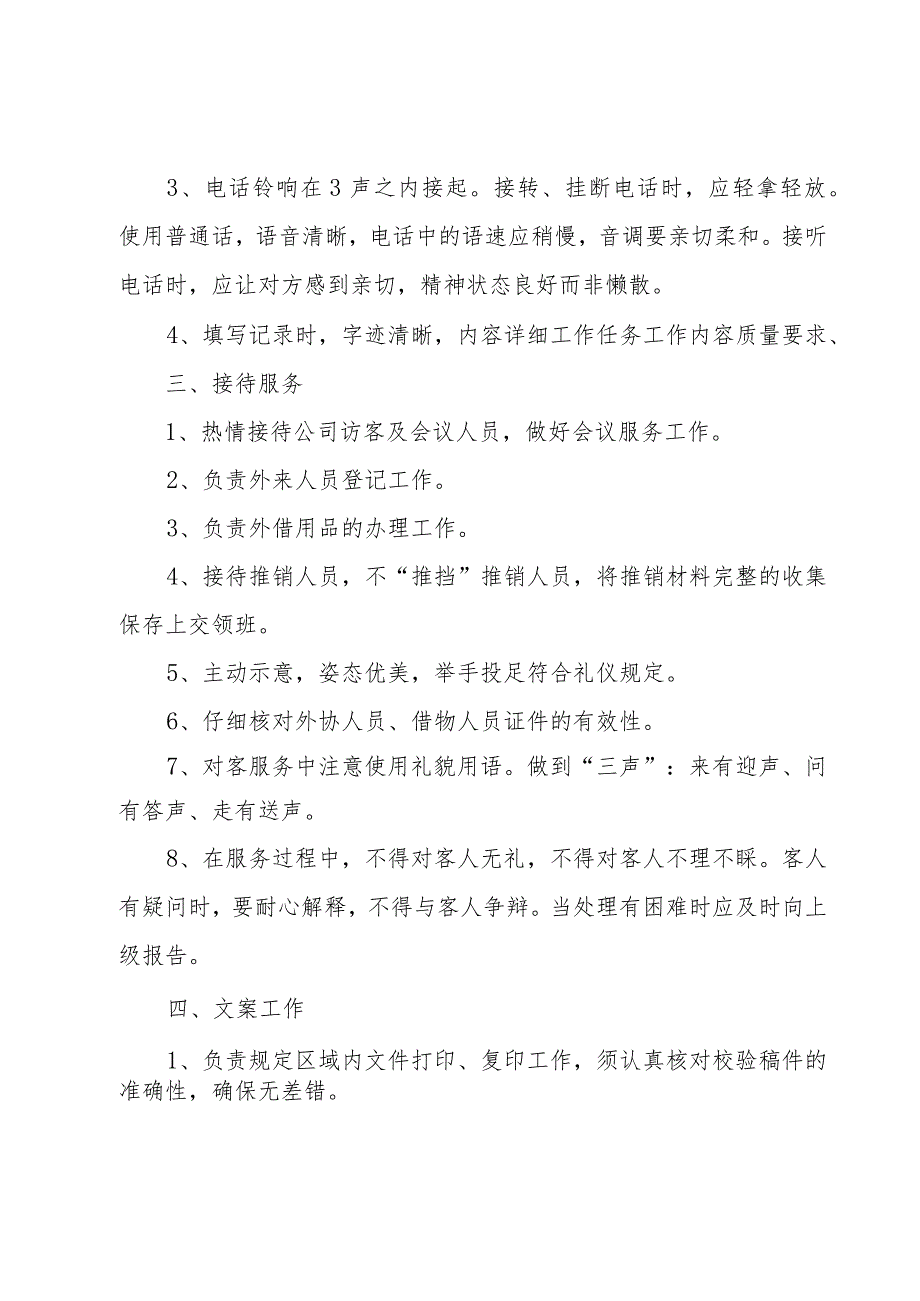 3、电话铃响在 3 声之内接起。接转、挂断电话时，应轻拿轻放。
使用普通话，语音清晰，电话中的语速应稍慢，音调要亲切柔和。接听
电话时，应让对方感到亲切，精神状态良好而非懒散。
4、填写记录时，字迹清晰，内容详细工作任务工作内容质量要求、
三、接待服务
1、热情接待公司访客及会议人员，做好会议服务工作。
2、负责外来人员登记工作。
3、负责外借用品的办理工作。
4、接待推销人员，不“推挡”推销人员，将推销材料完整的收集
保存上交领班。
5、主动示意，姿态优美，举手投足符合礼仪规定。
6、仔细核对外协人员、借物人员证件的有效性。
7、对客服务中注意使用礼貌用语。做到“三声”：来有迎声、问
有答声、走有送声。
8、在服务过程中，不得对客人无礼，不得对客人不理不睬。客人
有疑问时，要耐心解释，不得与客人争辩。当处理有困难时应及时向上
级报告。
四、文案工作
1、负责规定区域内文件打印、复印工作，须认真核对校验稿件的
准确性，确保无差错。